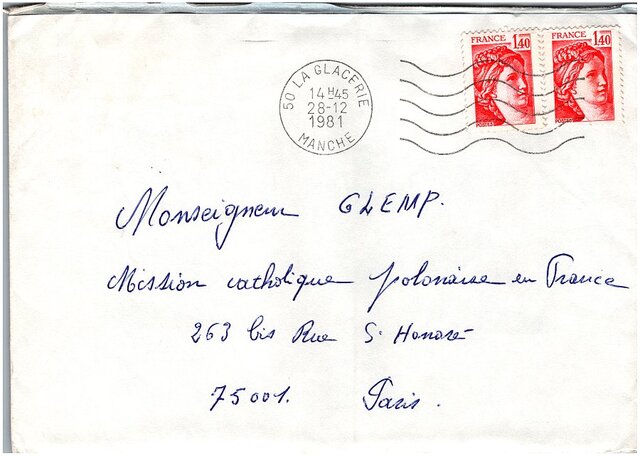 FRANCE 1,40
FRANCE 1,40
POSTES
POSTES
50 LA GLACERIE
14 H45
28-12
1981
MANCHE
Monseigneur GLEMP.
Mission catholique polonaise en France
263 bis Rue St Honoré
75001. Paris.